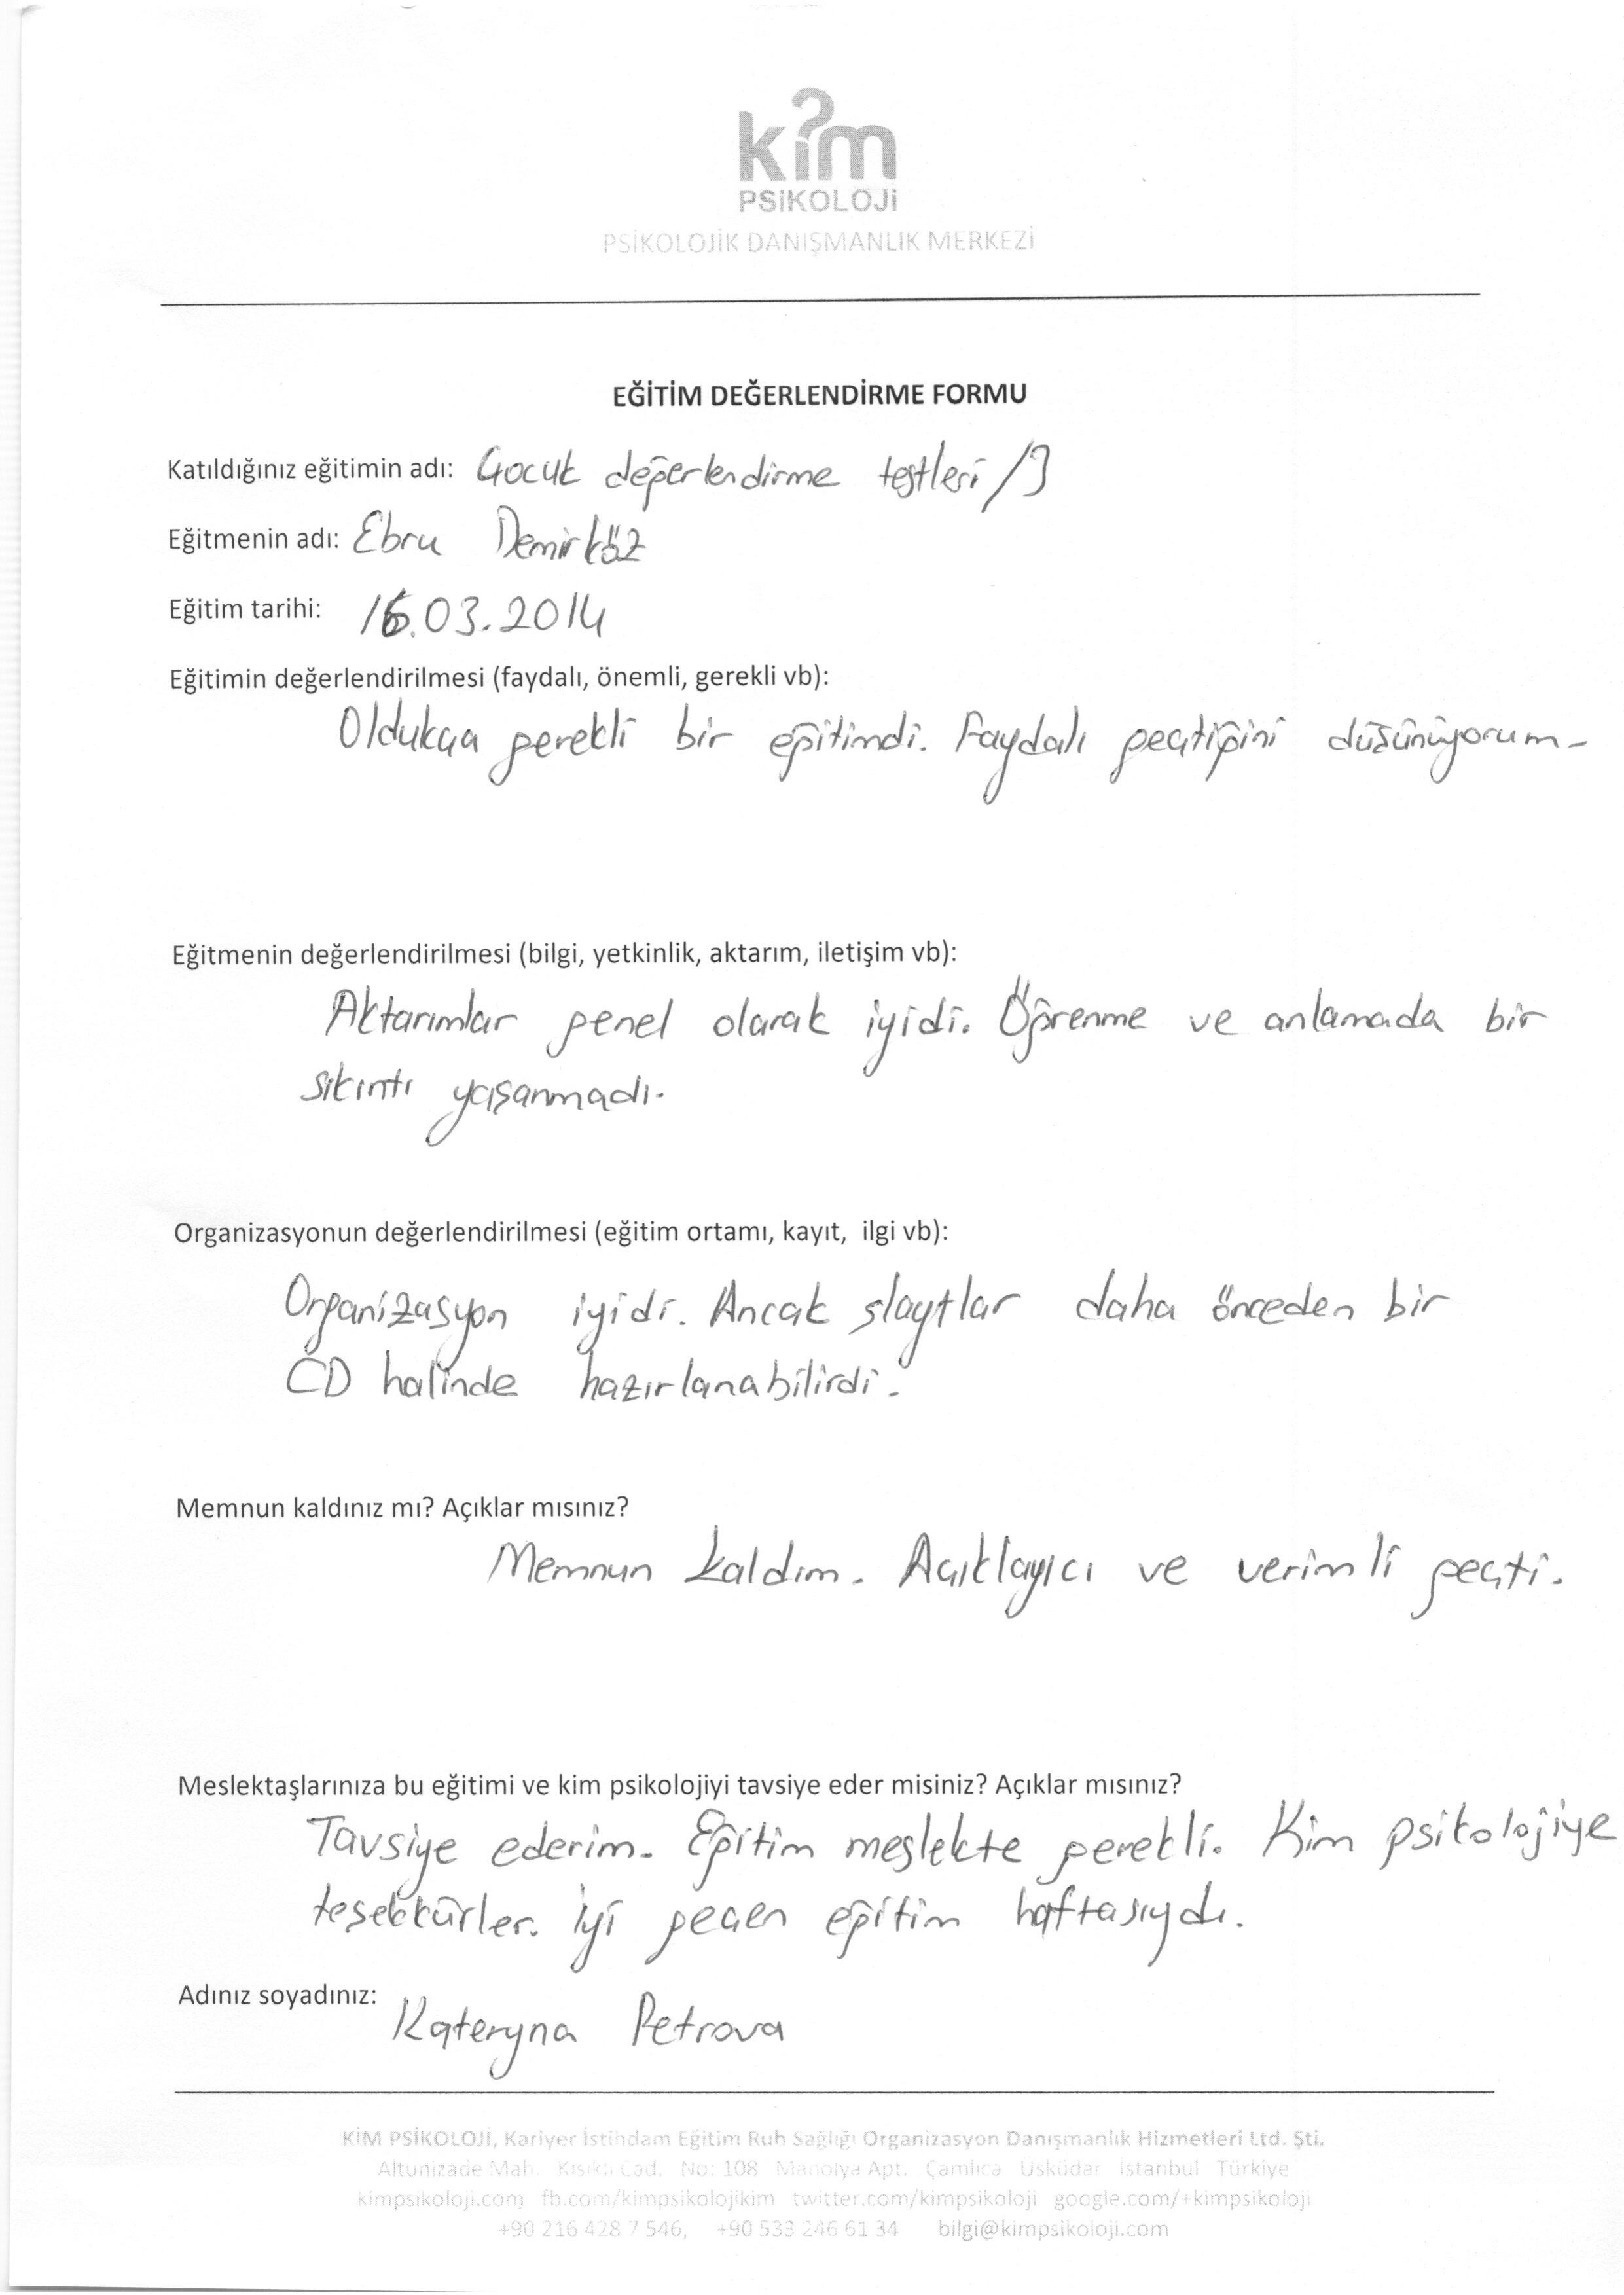 kim
PSiKOLOJi
PSİKOLOJİK DANIŞMANLIK MERKEZİ
EĞİTİM DEĞERLENDİRME FORMU
Katıldığınız eğitimin adı: Çocuk değerlendirme testleri /3
Eğitmenin adı: Ebru Demirköz
Eğitim tarihi: 16.03.2014
Eğitimin değerlendirilmesi (faydalı, önemli, gerekli vb):
Oldukça gerekli bir eğitimdi. Faydalı geçtiğini düşünüyorum.
Eğitmenin değerlendirilmesi (bilgi, yetkinlik, aktarım, iletişim vb):
Aktarımlar genel olarak iyidi. Öğrenme ve anlamada bir
sıkıntı yaşanmadı.
Organizasyonun değerlendirilmesi (eğitim ortamı, kayıt, ilgi vb):
Organizasyon iyidi. Ancak slaytlar daha önceden bir
CD halinde hazırlanabilirdi.
Memnun kaldınız mı? Açıklar mısınız?
Memnun kaldım. Açıklayıcı ve verimli geçti.
Meslektaşlarınıza bu eğitimi ve kim psikolojiyi tavsiye eder misiniz? Açıklar mısınız?
Tavsiye ederim. Eğitim meslekte gerekli. Kim psikolojiye
teşekkürler. İyi geçen eğitim haftasıydı.
Adınız soyadınız: Kateryna Petrova
KİM PSİKOLOJİ, Kariyer İstihdam Eğitim Ruh Sağlığı Organizasyon Danışmanlık Hizmetleri Ltd. Şti.
Altunizade Mah. Kısıklı Cad. No: 108 Manolya Apt. Çamlıca Üsküdar İstanbul Türkiye
kimpsikoloji.com fb.com/kimpsikolojikim twitter.com/kimpsikoloji google.com/+kimpsikoloji
+90 216 428 7 546, +90 533 246 61 34 bilgi@kimpsikoloji.com